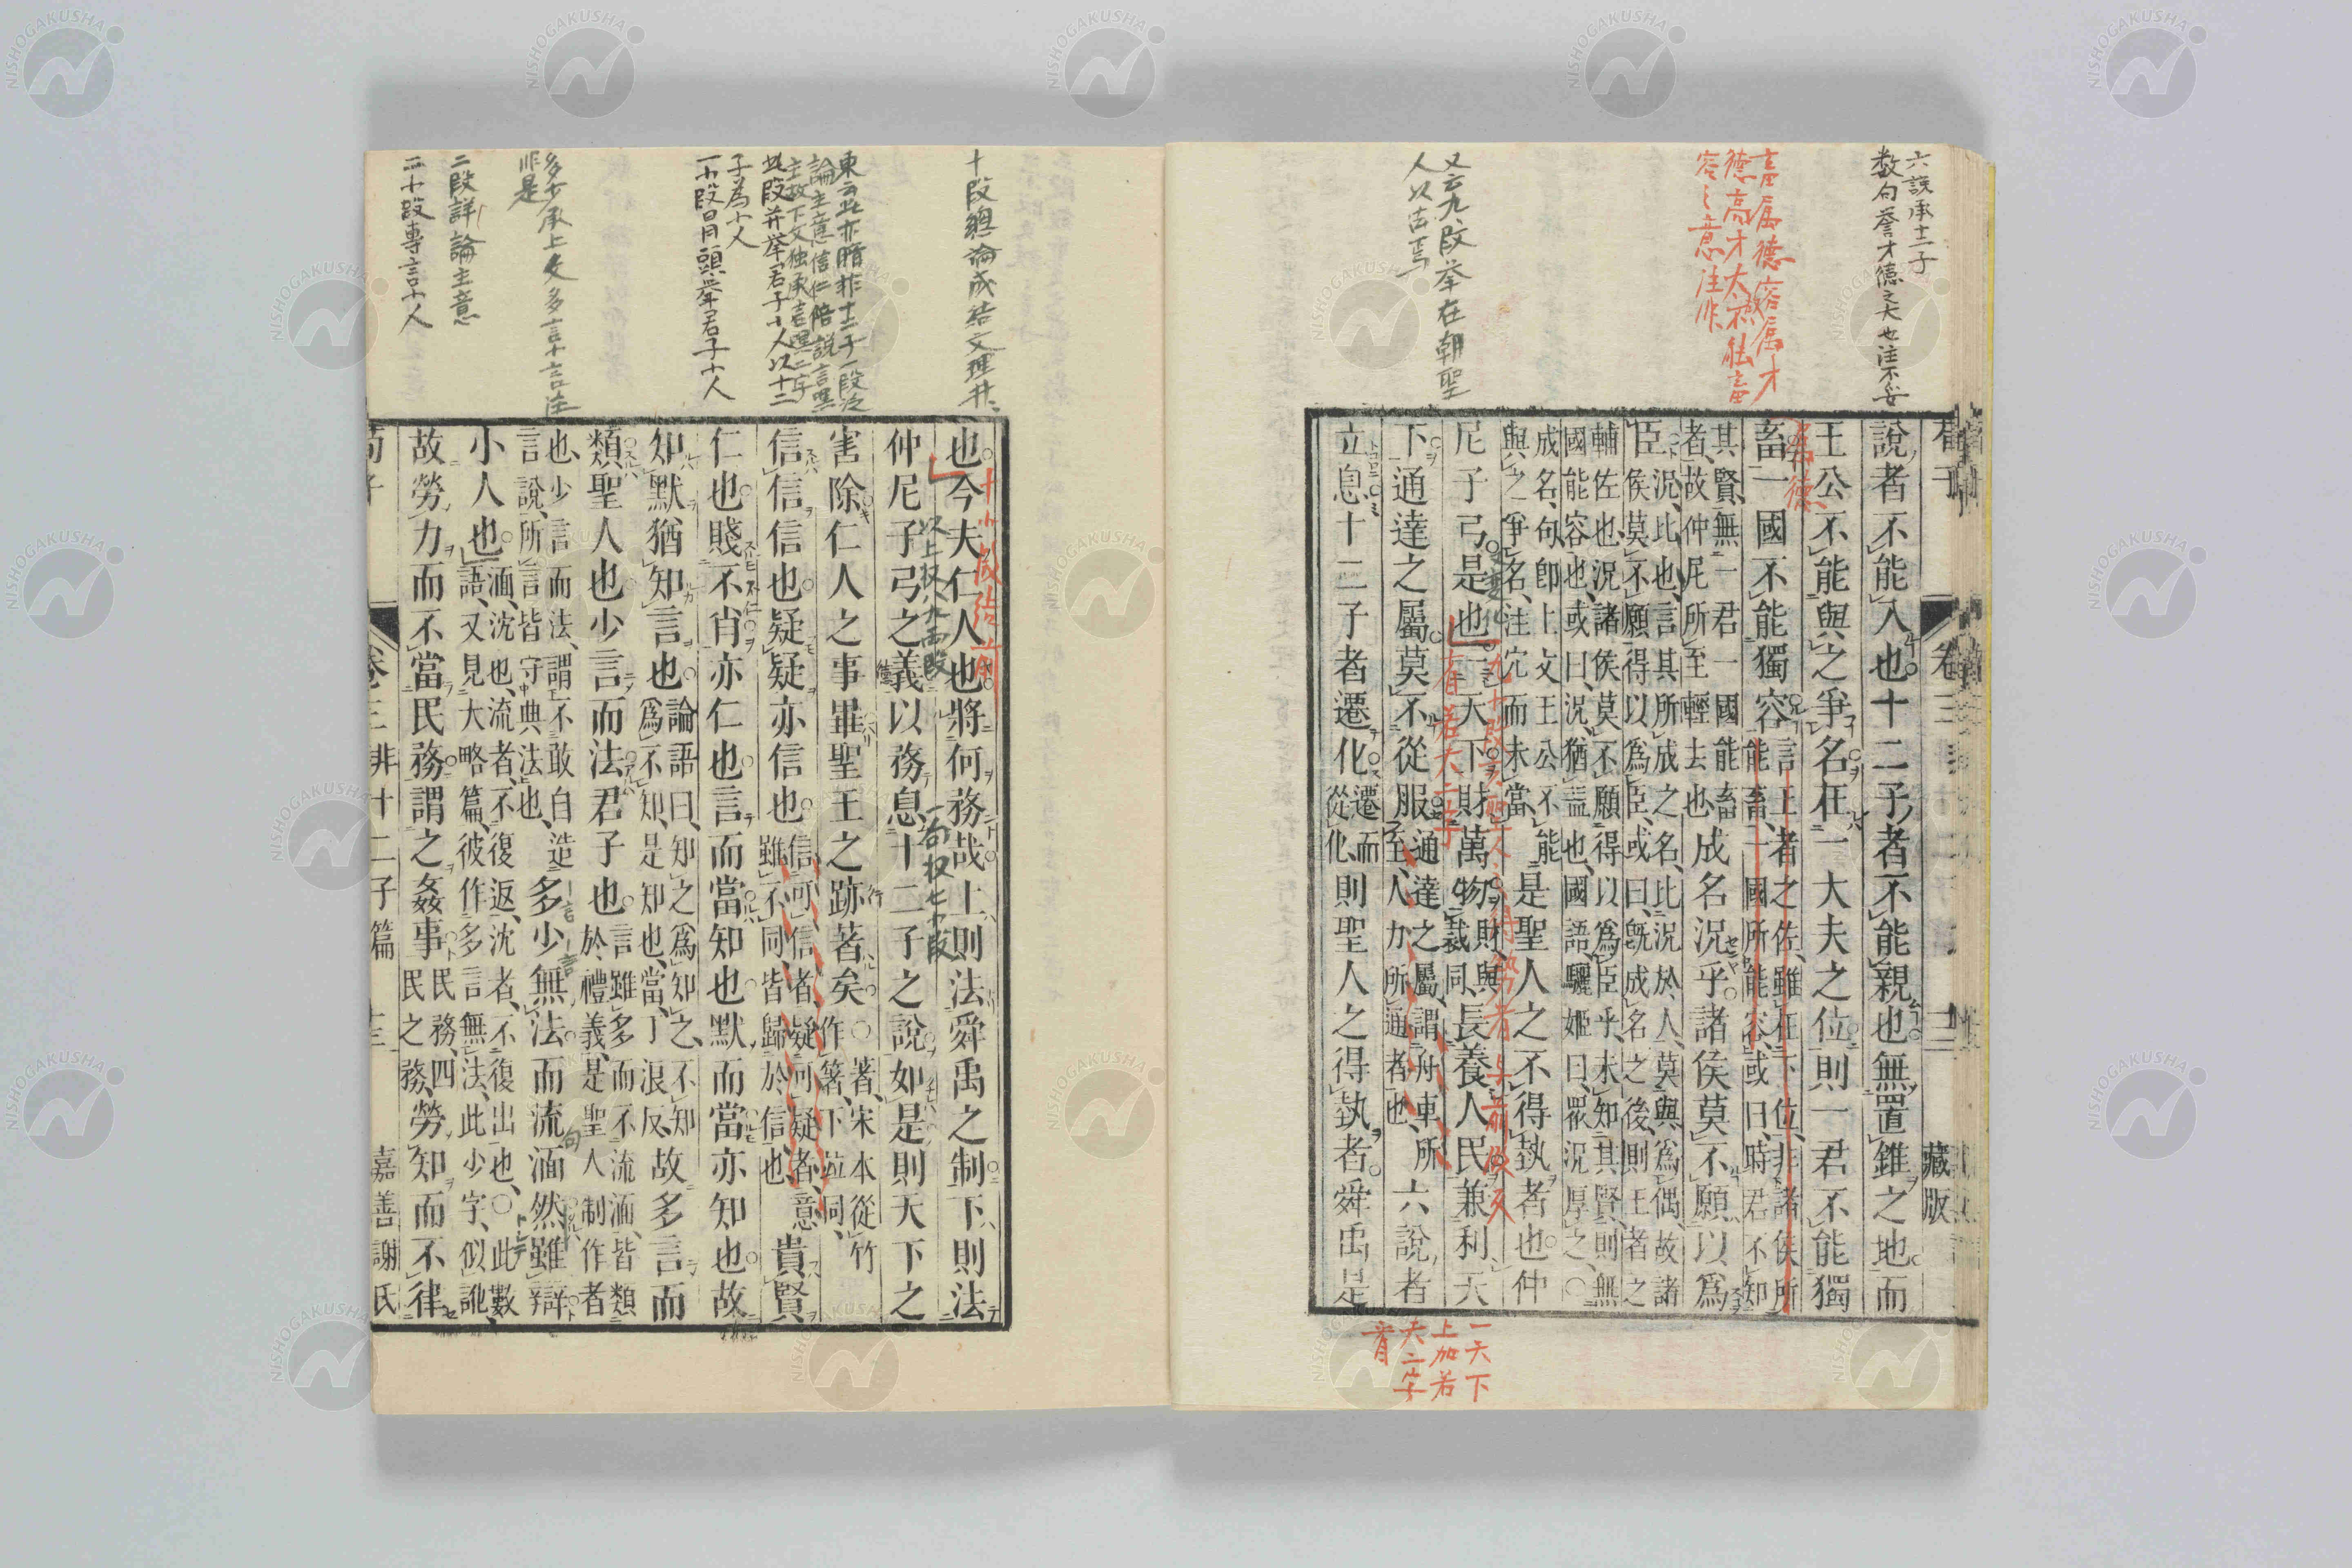 六説承十二子
数句誉才徳之大也注不妥
畜属徳容属才
徳高才大
容之意注非
又云九段挙在朝聖
人以吉焉
荀子
卷三
藏版
說者不能入也十二子者不能親也無置錐之地而
王公不能與之爭名在一大夫之位則一君不能獨
畜一國不能獨容
言王者之佐雖在下位非諸侯所
能畜一國所能容或曰時君不知
其賢無一君一國能畜
者故仲尼所至輕去也
成名況乎諸侯莫不願以爲
臣
況比也言其所成之名比況於人莫與爲偶故諸
侯莫不願得以爲臣或曰旣成名之後則王者之
輔佐也況諸侯莫不願得以爲臣乎未知其賢則無
國能容也或曰況猶益也國語驪姬曰衆況厚之○
成名句卽上文王公不能
與之爭名注宂而未當
是聖人之不得埶者也仲
尼子弓是也一天下財萬物
財與
裁同
長養人民兼利天
下通達之屬莫不從服
通達之屬謂舟車所
至人力所通者也
六說者
立息十二子者遷化
遷而
從化
則聖人之得埶者舜禹是
一天下
上加若
夫二字
看
十段總論成結文理井々
東云此亦暗非十二子一段泛
論主意信仁陪説言黙
主故下文独承言黙二字
此段并挙君子小人以十二
子為小人
一小段冒頭挙君子小人
多少承上文多言少言注
非是
二段詳論主意
三小段專言小人
十小段結前
也今夫仁人也將何務哉上則法舜禹之制下則法
仲尼子弓之義以務息十二子之說如是則天下之
害除仁人之事畢聖王之跡著矣
○著宋本從竹
作箸下並同
信信信也疑疑亦信也
信可信者疑可疑者意
雖不同皆歸於信也
貴賢
仁也賤不肖亦仁也言而當知也默而當亦知也故
知默猶知言也
論語曰知之爲知之不知
爲不知是知也當丁浪反
故多言而
類聖人也少言而法君子也
言雖多而不流湎皆類
於禮義是聖人制作者
也少言而法謂不敢自造
言說所言皆守典法也
多少無法而流湎然雖辯
小人也
湎沈也流者不復返沈者不復出也○此數
語又見大略篇彼作多言無法此少字似訛
故勞力而不當民務謂之姦事
民務四
民之務
勞知而不律
荀子
卷三非十二子篇
十三
嘉善謝氏